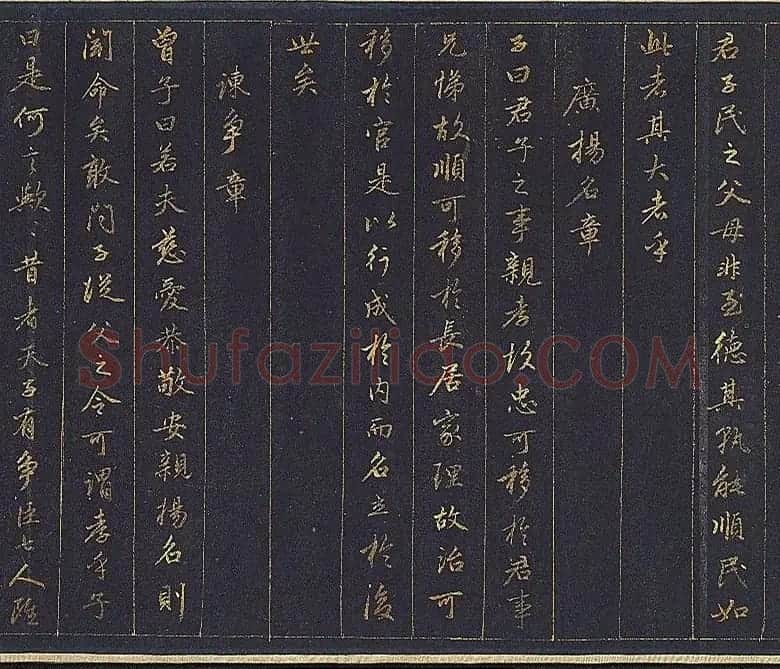 君子民之父母非至德其孰能順民如
此者其大者乎
廣揚名章
子曰君子之事親孝故忠可移於君事
兄悌故順可移於長居家理故治可
移於官是以行成於内而名立於後
世矣
諫爭章
曾子曰若夫慈愛恭敬安親揚名則
聞命矣敢問子從父之令可謂孝乎子
曰是何言歟〻昔者天子有爭臣七人雖
Shufaziliao.COM